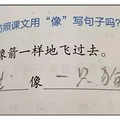 仿照课文用“像”写句子吗?
像箭一样地飞过去。
像一只